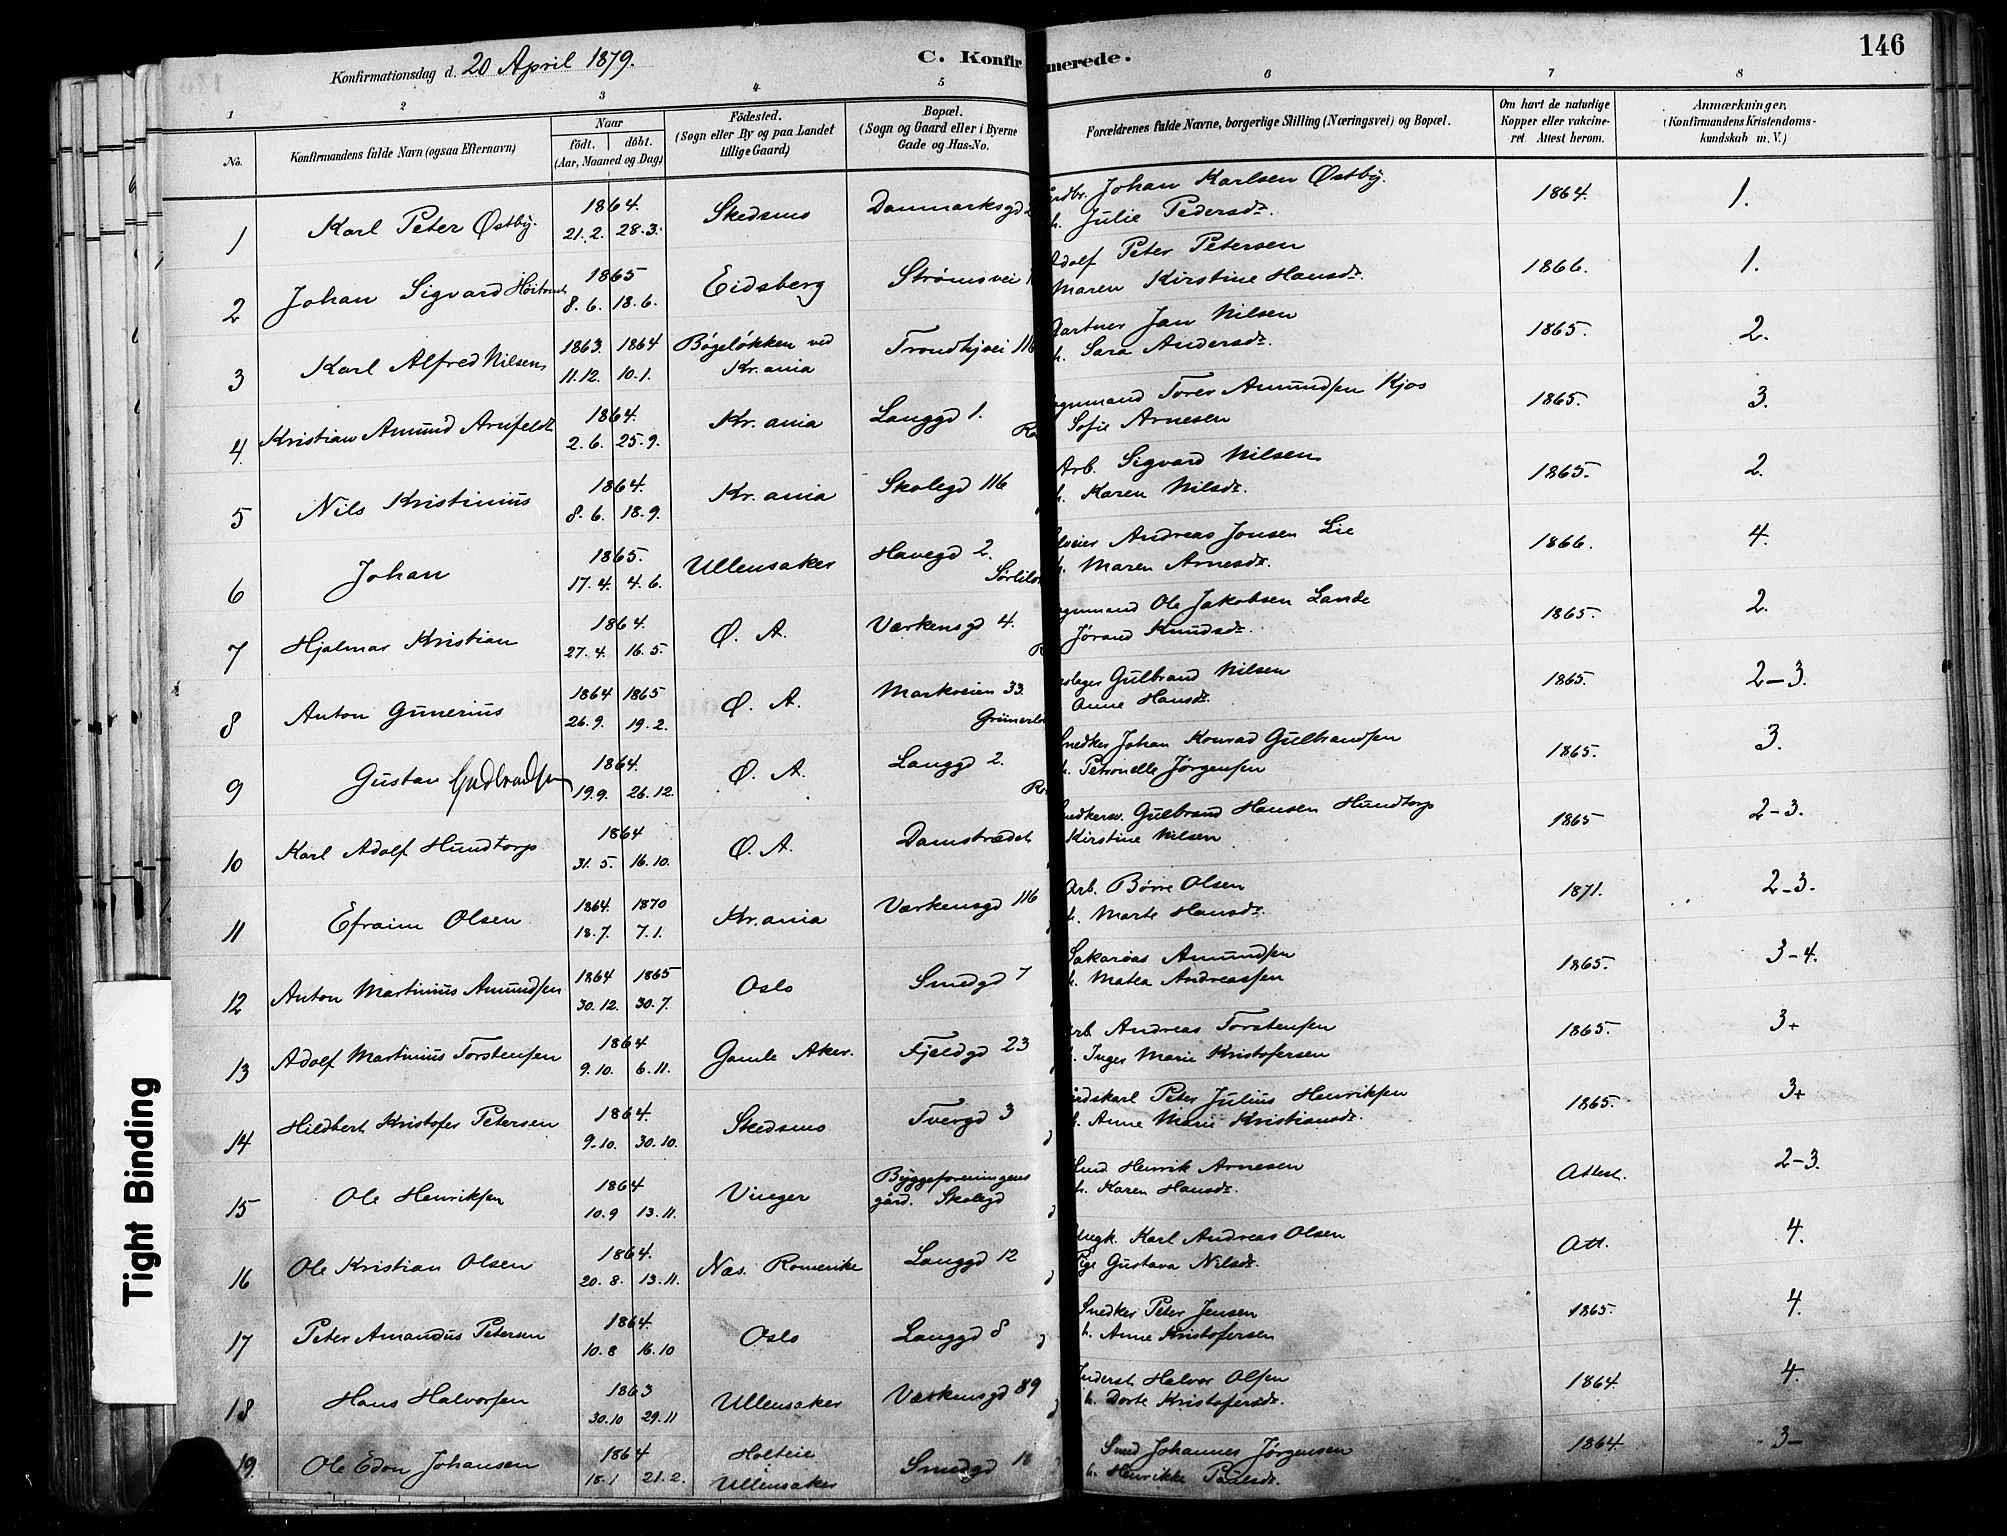 146
Konfirmationsdag d. 20 April 1879.
C. Konfirmerede.
1 2 3 4 5 6 7 8
No.
Konfirmandens fulde Navn (ogsaa Efternavn)
Naar
født. døbt.
(Aar, Maaned og Dag)
Fødested.
(Sogn eller By og paa Landet
tillige Gaard)
Bopæl.
(Sogn og Gaard eller i Byerne
Gade og Hus-No.
Forældrenes fulde Navne, borgerlige Stilling (Næringsvei) og Bopæl.
Om havt de naturlige
Kopper eller vakcine-
ret Attest herom.
Anmærkninger.
(Konfirmandens Kristendoms-
kundskab m. V.)
1 Karl Peter Østby. 1864. 21.2. 28.3. Skedsmo Danmarksgd Johan Karlsen Østby. 1864. 1.
Julie Pedersdr.
2 Johan Sigvard 1865 8.6. 18.6. Eidsberg Strømsvei Adolf Peter Petersen 1866. 1.
Maren Kirstine Hansdr.
3 Karl Alfred Nilsen 1863. 1864 11.12. 10.1. Bøgeløkken ved Kr.ania Trondhjvei 116 Gartner Jan Nilsen 1865. 2.
Sara Andersdr.
4 Kristian Amund Arnfeldt 1864. 2.6. 25.9. Kr.ania Langgd 1. Torer Amundsen Kjos 1865. 3.
Sofie Arnesen
5 Nils Kristinius 1864. 8.6. 18.9. Kr.ania Skolegd 116 Arb. Sigvard Nilsen 1865. 2.
Karen Nilsdr.
6 Johan 1865. 17.4. 4.6. Ullensaker Havegd 2. Andreas Jonsen Lie 1866. 4.
Maren Arnesdr.
7 Hjalmar Kristian 1864. 27.4. 16.5. Ø. A. Værkensgd 4. Ole Jakobsen Lande 1865. 2.
Jørand Knudsdr.
8 Anton Gunerius 1864 1865 26.9. 19.2. Ø. A. Markveien 33. Gulbrand Nilsen 1865. 2-3.
Anne Hansdr.
9 Gustav Gudbrandsen 1864. 19.9. 26.12. Ø. A. Langgd 2. Snedker Johan Konrad Gulbrandsen 1865. 3.
Petronelle Jørgensen
10 Karl Adolf Hundtorp 1864 31.5. 16.10. Ø. A. Damstrædet Gulbrand Hansen Hundtorp 1865 2-3.
Kirstine Nilsen
11 Efraim Olsen 1864. 1870 18.7. 7.1. Kr.ania Værkensgd 116 Arb. Børre Olsen 1871. 2-3.
Marte Hansdr.
12 Anton Martinius Amundsen 1864 1865 30.12. 30.7. Oslo Smedgd 7 Sakarias Amundsen 1865. 3-4.
Matea Andreassen
13 Adolf Martinius Torstensen 1864 9.10. 6.11. Gamle Aker. Fjeldgd 23 Arb. Andreas Torstensen 1865. 3+
Inger Marie Kristofersen
14 Hildbert Kristofer Petersen 1864. 9.10. 30.10. Skedsmo Tvergd 3 Peter Julius Henriksen 1865. 3+
Anne Marie Kristiansdr.
15 Ole Henriksen 1864 10.9 13.11. Vinger Byggeforeningens gård. Skolegd Smd. Henrik Arnesen Attest. 2-3.
Karen Hansdr.
16 Ole Kristian Olsen 1864. 20.8. 13.11. Næs. Romerike Langgd 12 Ungk. Karl Andreas Olsen Att. 4.
Pige Gustava Nilsdr.
17 Peter Amandus Petersen 1864. 10.8 16.10 Oslo Langgd 8 Snedker Peter Jensen 1865. 4.
Anne Kristofersen
18 Hans Halvorsen 1863 30.10 29.11 Ullensaker Værkensgd 89 Inderst Halvor Olsen 1864. 4.
h. Dorte Kristofersdr.
19. Ole Edon Johansen 1864 18.1 21.2. Holteie i Ullensaker Smedgd 18 Smd Johannes Jørgensen 1864. 3-
h. Henrikke Paulsdr.
Tight Binding